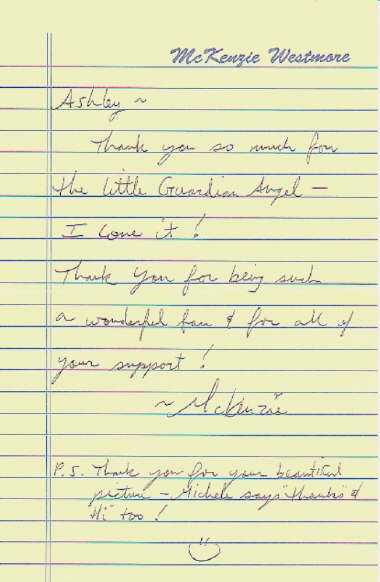 McKenzie Westmore
Ashley ~
Thank you so much for
the little Guardian Angel –
I love it!
Thank you for being such
a wonderful fan & for all of
your support!
~ McKenzie
P.S. Thank you for your beautiful
picture – Michele says "thanks" &
"Hi" too!